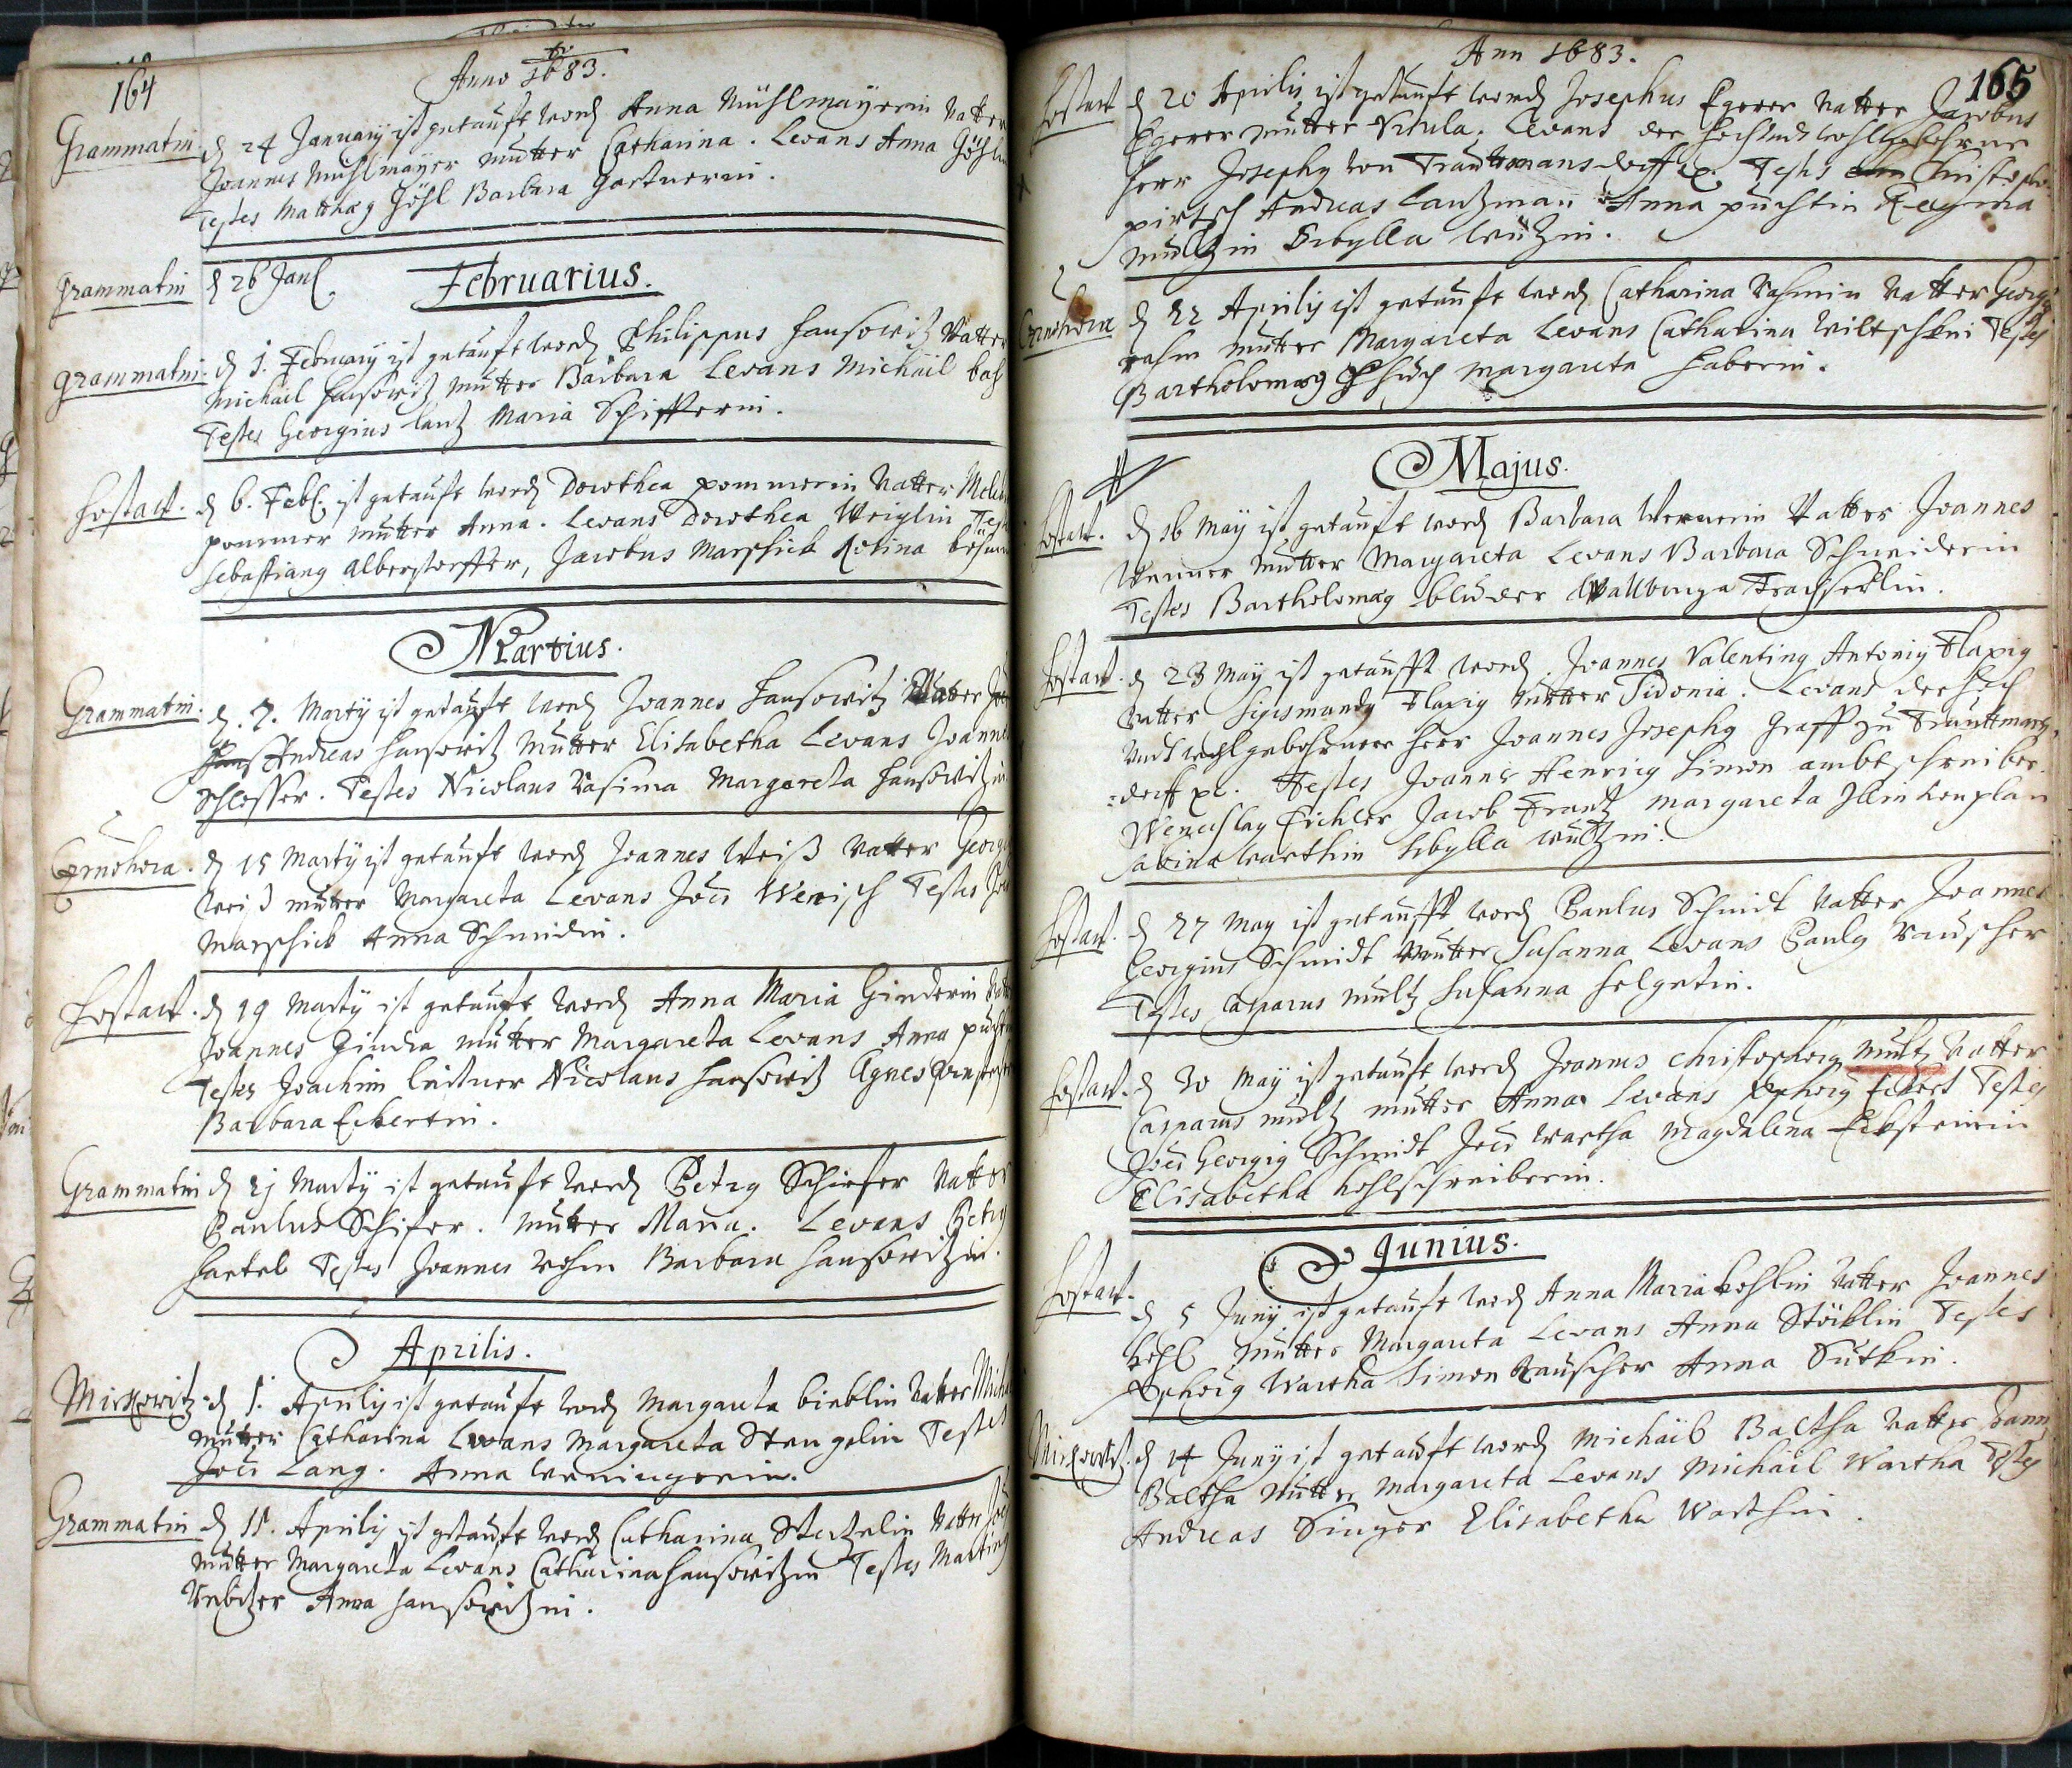 164
Anno 1683.
Grammatin. d 24 January ist getauft word Anna Mühlmayerin Vatter
Joannes Mühlmayer Mutter Catharina. Levans Anna
Testes Matthæg Göhl Barbara Gartnerin.
Grammatin d 26 Jan
Februarius.
Grammatin. d 1. February ist getauft word Philippus Hansowitz Vatter
Michael Hansowitz Mutter Barbara Levans Michael
Testes Georgius Lantz Maria Schifferin.
Hostart. d 6. Feb. ist getauft word Dorothea Pommerin Vatter
Pommer Mutter Anna. Levans Dorothea Weiglin
Sebastiang Alberstorffer, Jacobus Marschick Rosina
Martius.
Grammatin. d. 7. Marty ist getauft word Joannes Hansowitz Vatter
Andreas Hansowitz Mutter Elisabetha Levans Joannes
Schlosser. Testes Nicolaus Margareta Hansowitzin
Czernohora. d 15 Marty ist getauft word Joannes Weiß Vatter Georg
Weiß Mutter Margareta Levans Joes Wenisch Testes
Marschick Anna Schmidin.
Hostart. d 19 Marty ist getauft word Anna Maria Ginderin
Joannes Gindra Mutter Margareta Levans Anna
Testes Joachim Leitner Nicolaus Hansowitz Agnes
Barbara Eckertin.
Grammatin d 21 Marty ist getauft word Petrg Schiefer Vatter
Paulus Schifer. Mutter Maria. Levans Petrg
Hartel Testes Joannes Rohm Barbara Hansowitzin.
Aprilis.
Mirkowitz d 1. Aprilis ist getauft word Margareta Bieblin Vatter
Mutter Catharina Levans Margareta Stengelin Testes
Joes Lang. Anna Weningerin.
Grammatin d 11. Aprilis ist getauft word Catharina Stertzelin Vatter
Mutter Margareta Levans Catharina Hansowitzin Testes Marting
Anna Hansowitzin.
165
Ann 1683.
Hostart d 20 Aprilis ist getauft word Josephus Egerer Vatter Jacobus
Egerer Mutter Ursula. Levans der Hoch und Wohlgebohrne
Herr Josephg von Trauttmansdorff &c. Testes
Andreas Lantzman Anna Puchtin Regina
Multzin Sibylla
d 22 Aprilis ist getauft word Catharina Rahmin Vatter Georg
Rahm Mutter Margareta Levans Catharina Testes
Bartholomæg Margareta Haberin.
Majus.
Hostart. d 16 May ist getauft word Barbara Wernerin Vatter Joannes
Werner Mutter Margareta Levans Barbara Schneiderin
Testes Bartholomæg Walburga
Hostart. d 23 May ist getaufft word Joannes Valenting Antonig Flaxig
Vatter Sigismundg Flaxig Mutter Sidonia. Levans der Hoch
und wohlgebohrner Herr Joannes Josephg Graff zu Trauttmans
dorff &c. Testes Joannes Henricg Simon ambtschreiber.
Wenceslag Eichler Jacob Frantz Margareta
Sabina Warthin Sibylla
Hostart. d 27 May ist getaufft word Paulus Schmidt Vatter Joannes
Georgius Schmidt Mutter Susanna Levans Paulg Rauscher
Testes Casparus Multz Susanna
Hostart. d 30 May ist getauft word Joannes Christophorg Multz Vatter
Casparus Multz Mutter Anna Levans Xphorg Eckert Testes
Joes Georgig Schmidt Joes Wartha Magdalena Eckstenin
Elisabetha Kohlschreiberin.
Junius.
Hostart. d 5 Juny ist getauft word Anna Maria Kohlin Vatter Joannes
Kohl Mutter Margareta Levans Anna Stöcklin Testes
Xphorg Wartha Simon Rauscher Anna Sutkin.
Mirkowitz. d 14 Juny ist getauft word Michael Baltha Vatter
Baltha Mutter Margareta Levans Michael Wartha Testes
Andreas Singer Elisabetha Warthin.